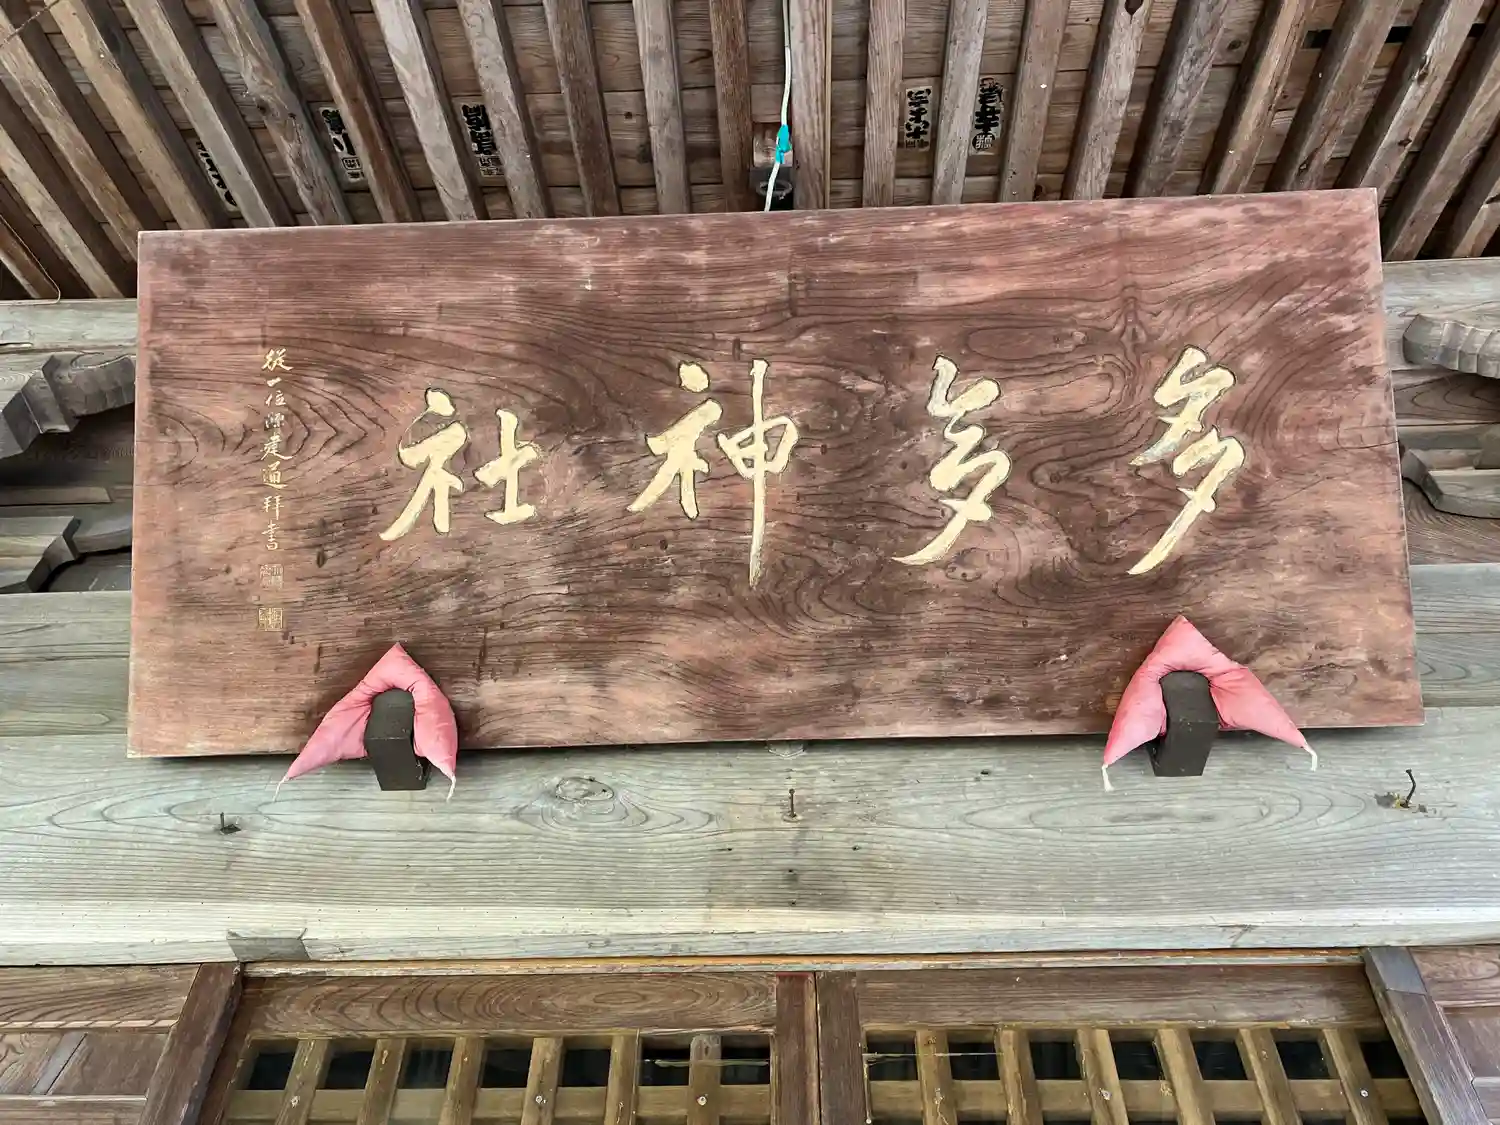 多多神社
從一位源建通拜書